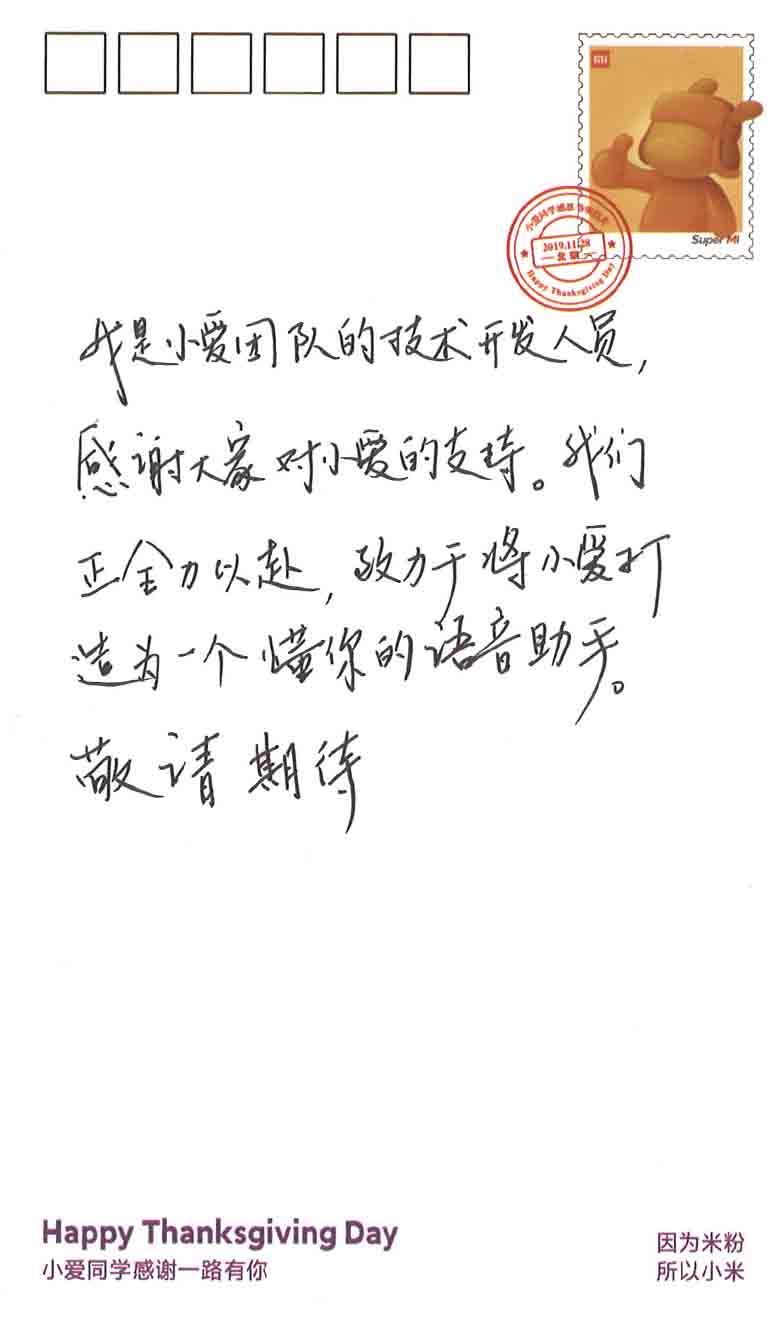 MI
Super Mi
2019.11.28
北京
Happy Thanksgiving Day
我是小爱团队的技术开发人员,
感谢大家对小爱的支持。我们
正全力以赴,致力于将小爱打
造为一个懂你的语音助手。
敬请期待
Happy Thanksgiving Day
小爱同学感谢一路有你
因为米粉
所以小米